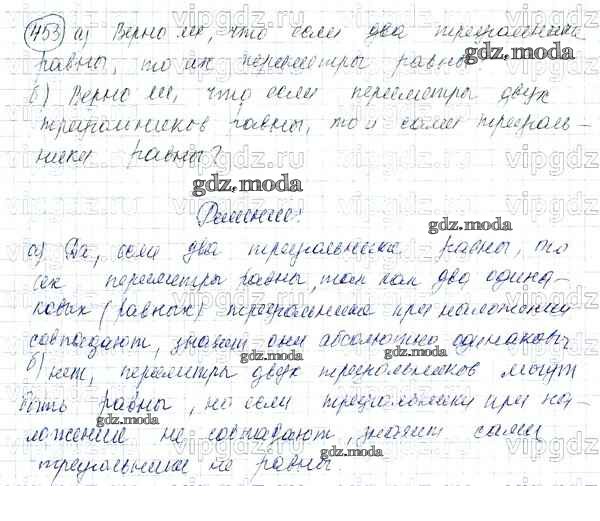 453 а) Верно ли, что если два треугольника
равны, то их периметры равны
б) Верно ли, что если периметры двух
треугольников равны, то и сами треуголь-
ники равны?
Решение:
а) Да, если два треугольника равны, то
их периметры равны, так как два одина-
ковых (равных) треугольника при наложении
совпадают, значит они абсолютно одинаковы
б) нет, периметры двух треугольников могут
быть равны, но если треугольники при на-
ложение не совпадают, значит сами
треугольники не равны.
gdz.moda
vipgdz.ru